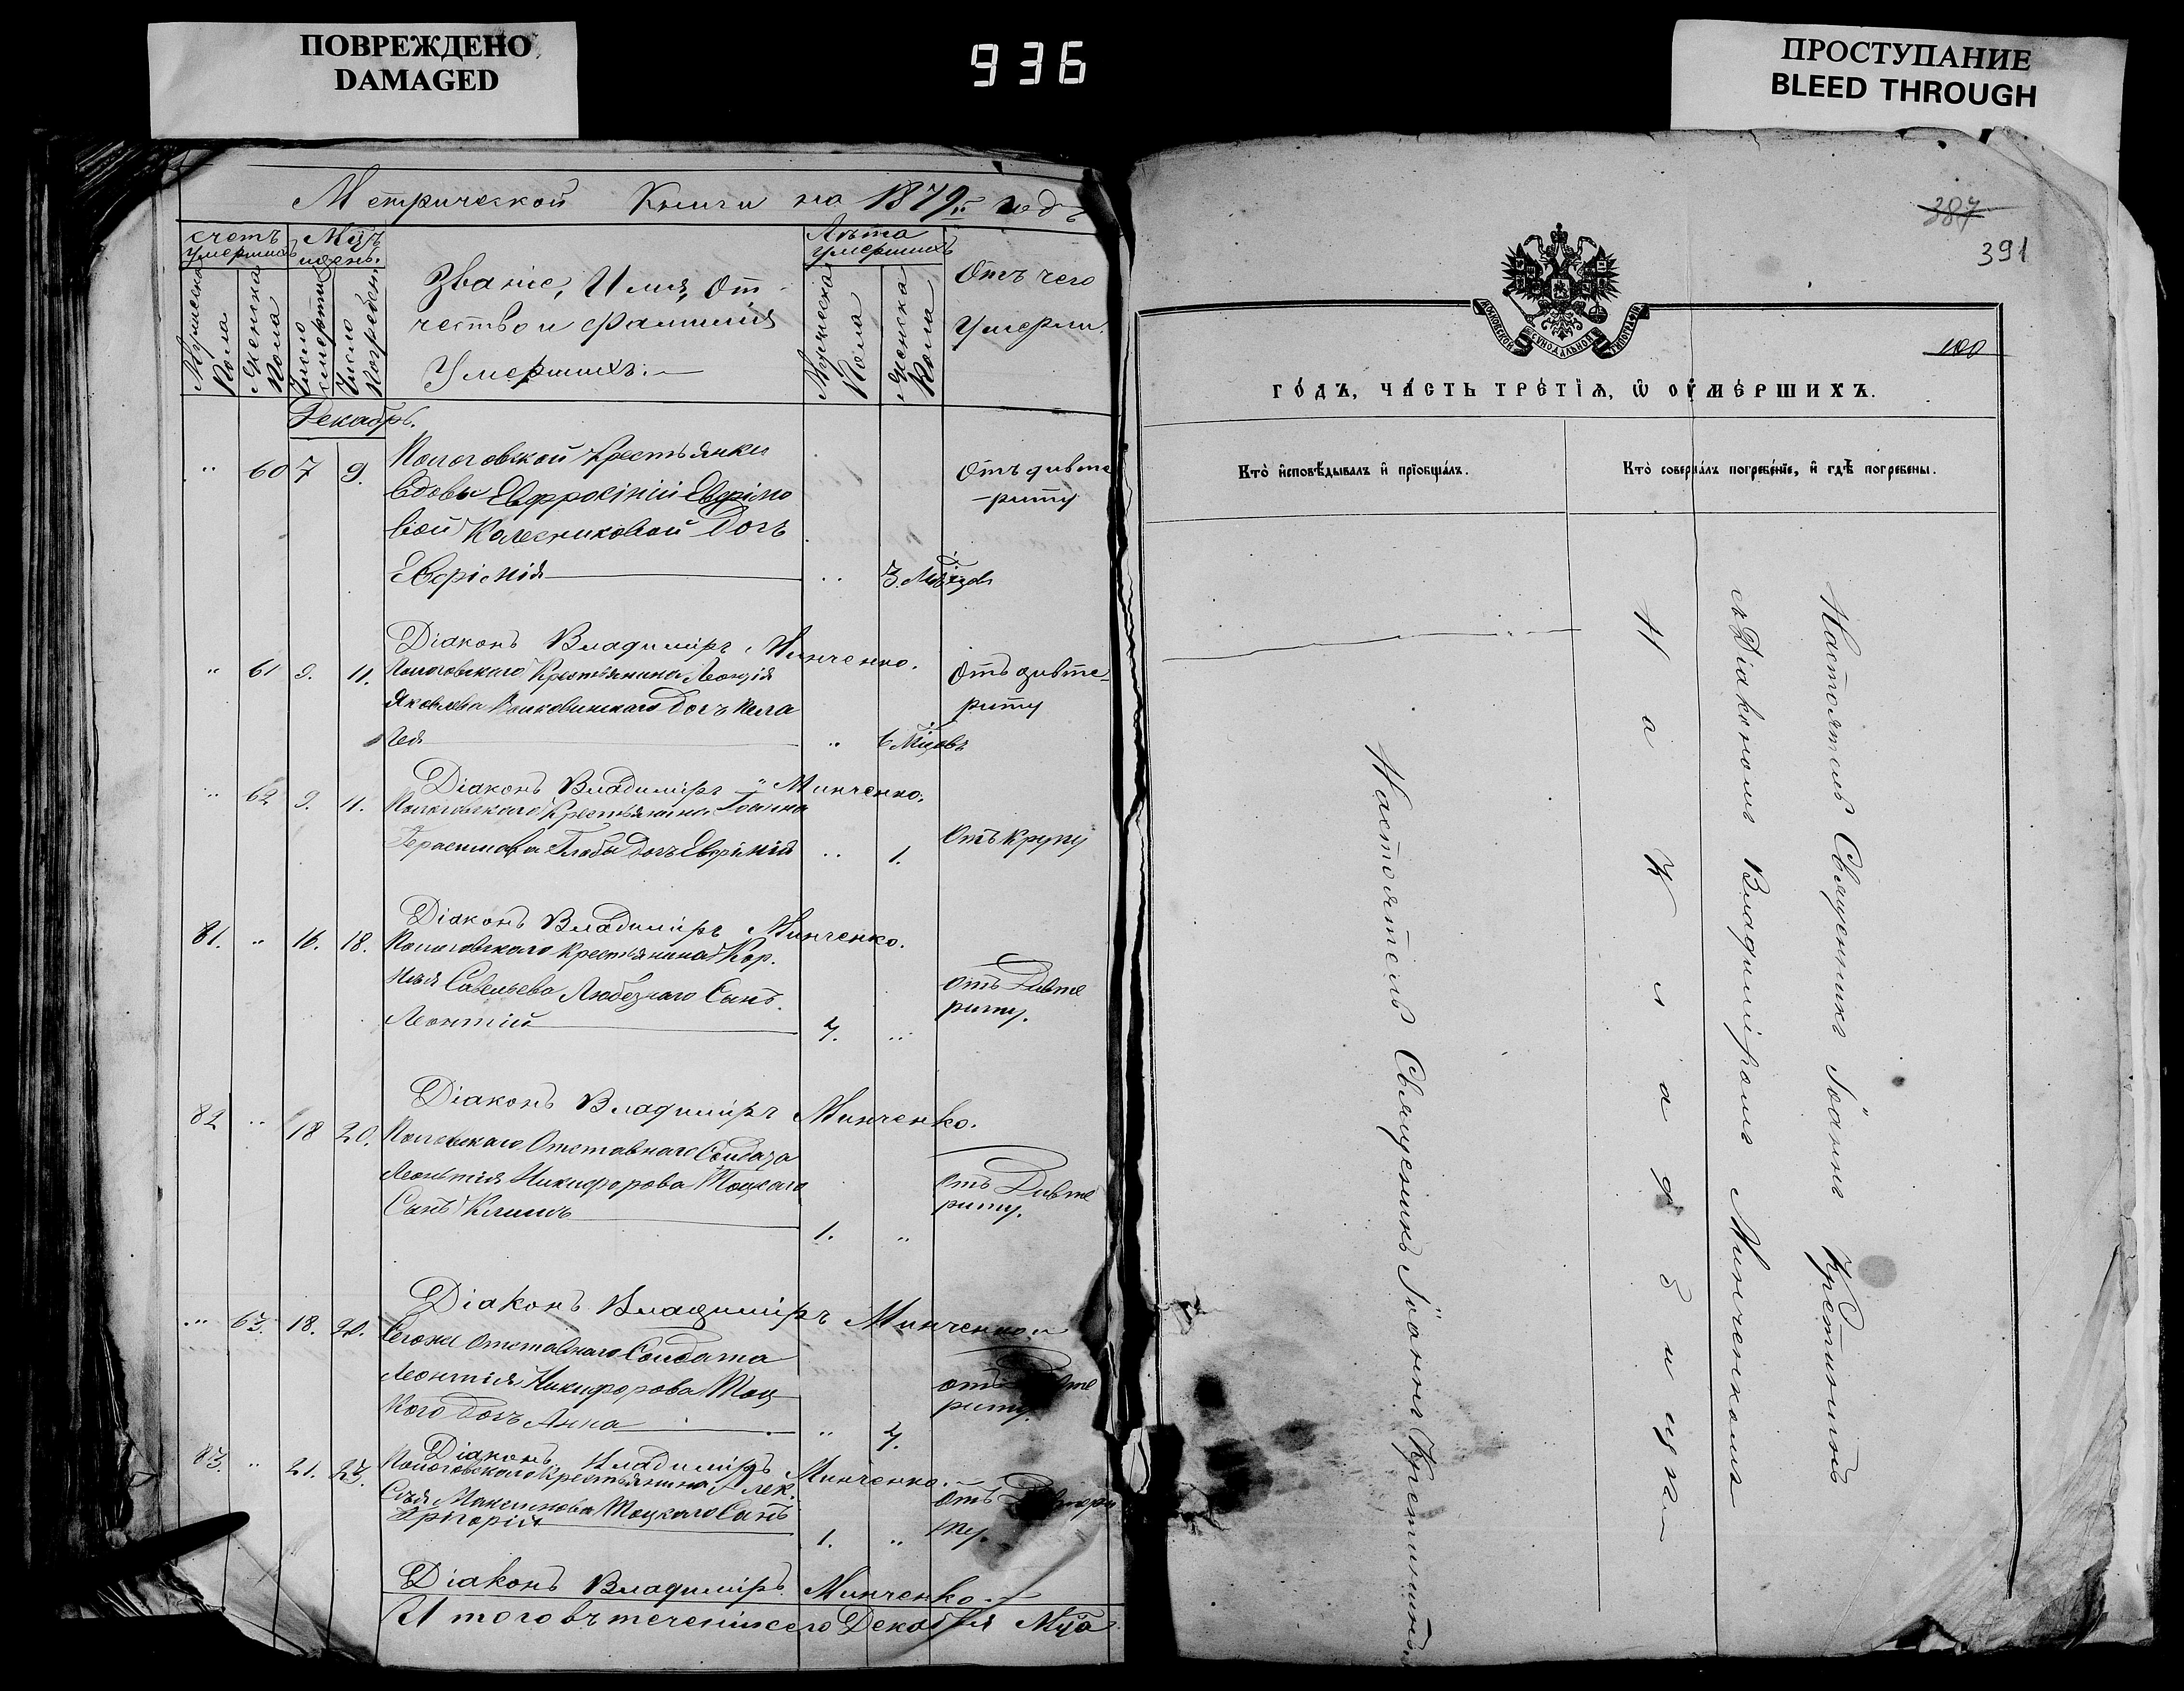 ПОВРЕЖДЕНО
DAMAGED
936
ПРОСТУПАНИЕ
BLEED THROUGH
Метрической Книги на 1879й годъ
счетъ умершихъ
Мужеска Пола
Женска Пола
Мцъ и день.
Число смерти
Число Погребен
Званіе, Имя, От-
чество и фамилія
Умершихъ:—
Лѣта умершихъ
Мужеска Пола
Женска Пола
Отъ чего
Умерли.
Декабрь.
" 60 7 9. Пологовской Крестьянки
Вдовы Евфросініи Евфімо
вой Колесниковой Дочь
Евфімія .. 3. Мѣ
Отъ дивте
-риту
Діаконъ Владиміръ Минченко.
" 61 9. 11. Пологовскаго Крестьянина Леонтія
Яковлева дочь Пела
гея " 6 Мцовъ
Отъ дивте-
риту
Діаконъ Владиміръ Минченко.
" 62 9. 11. Пологовскаго Крестьянина Іоанна
Герасимова Глобы дочь Евфімія .. 1.
Отъ крупу
Діаконъ Владиміръ Минченко.
81. " 16. 18. Пологовскаго крестьянина Кор.
нія Савельева Любезнаго Сынъ
Леонтій 7. ..
отъ Дивте
риту.
Діаконъ Владиміръ Минченко.
82 " 18 20. Отставнаго Солдата
Леонтія Никифорова Тоцкаго
Сынъ Климъ 1. "
отъ Дивте
риту.
Діаконъ Владиміръ Минченко
" 63. 18. 20. Отставнаго Солдата
Леонтія Никифорова Тоц
каго дочь Анна " 7.
отъ
риту.
Діаконъ Владиміръ Минченко.
83. " 21. 23. Пологовскаго Крестьянина Алек.
сѣя Максимова Тоцкаго Сынъ
Григорій 1. "
отъ
ту.
Діаконъ Владиміръ Минченко.
Итого въ теченіи сего Декабря Мца
387
391
МОСКОВСКОЙ СѴНОДАЛЬНОЙ ТИПОГРАФІИ
100
ГО́ДЪ, ЧА́СТЬ ТРЕ́ТІѦ, Ѡ҆ ОУ҆МЕ́РШИХЪ.
Кто̀ и҆сповѣ́дывалъ и҆ пріѡбща́лъ.
Кто̀ соверша́лъ погребе́ніе, и҆ гдѣ̀ погребены.
Настоятель Священникъ Іоаннъ
На кладбищѣ
съ Діакономъ Владиміромъ Минченкомъ
Настоятель Священникъ Іоаннъ